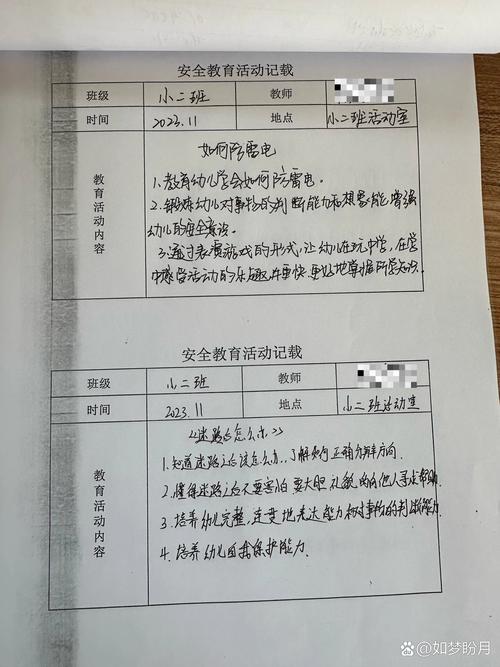 安全教育活动记载
班级 小二班 教师
时间 2023.11 地点 小二班活动室
教育活动内容
如何防雷电
1.教育幼儿学会如何防雷电。
2.锻炼幼儿对事物的判断能力和想象能,增强
幼儿的安全意识。
3.通过表演游戏的形式,让幼儿在玩中学,在学
中感受活动的乐趣,并更快、更好地掌握所学知识。
安全教育活动记载
班级 小二班 教师
时间 2023.11 地点 小二班活动室
教育活动内容
《迷路了怎么办》
1.知道迷路之后该怎么办,了解如何正确分辨方向.
2.懂得迷路之后不要害怕 要大胆 礼貌的向他人寻求帮助
3.培养幼儿完整,连贯地表达能力和对事物的判断能力.
4.培养幼儿自我保护能力.
@如梦盼月